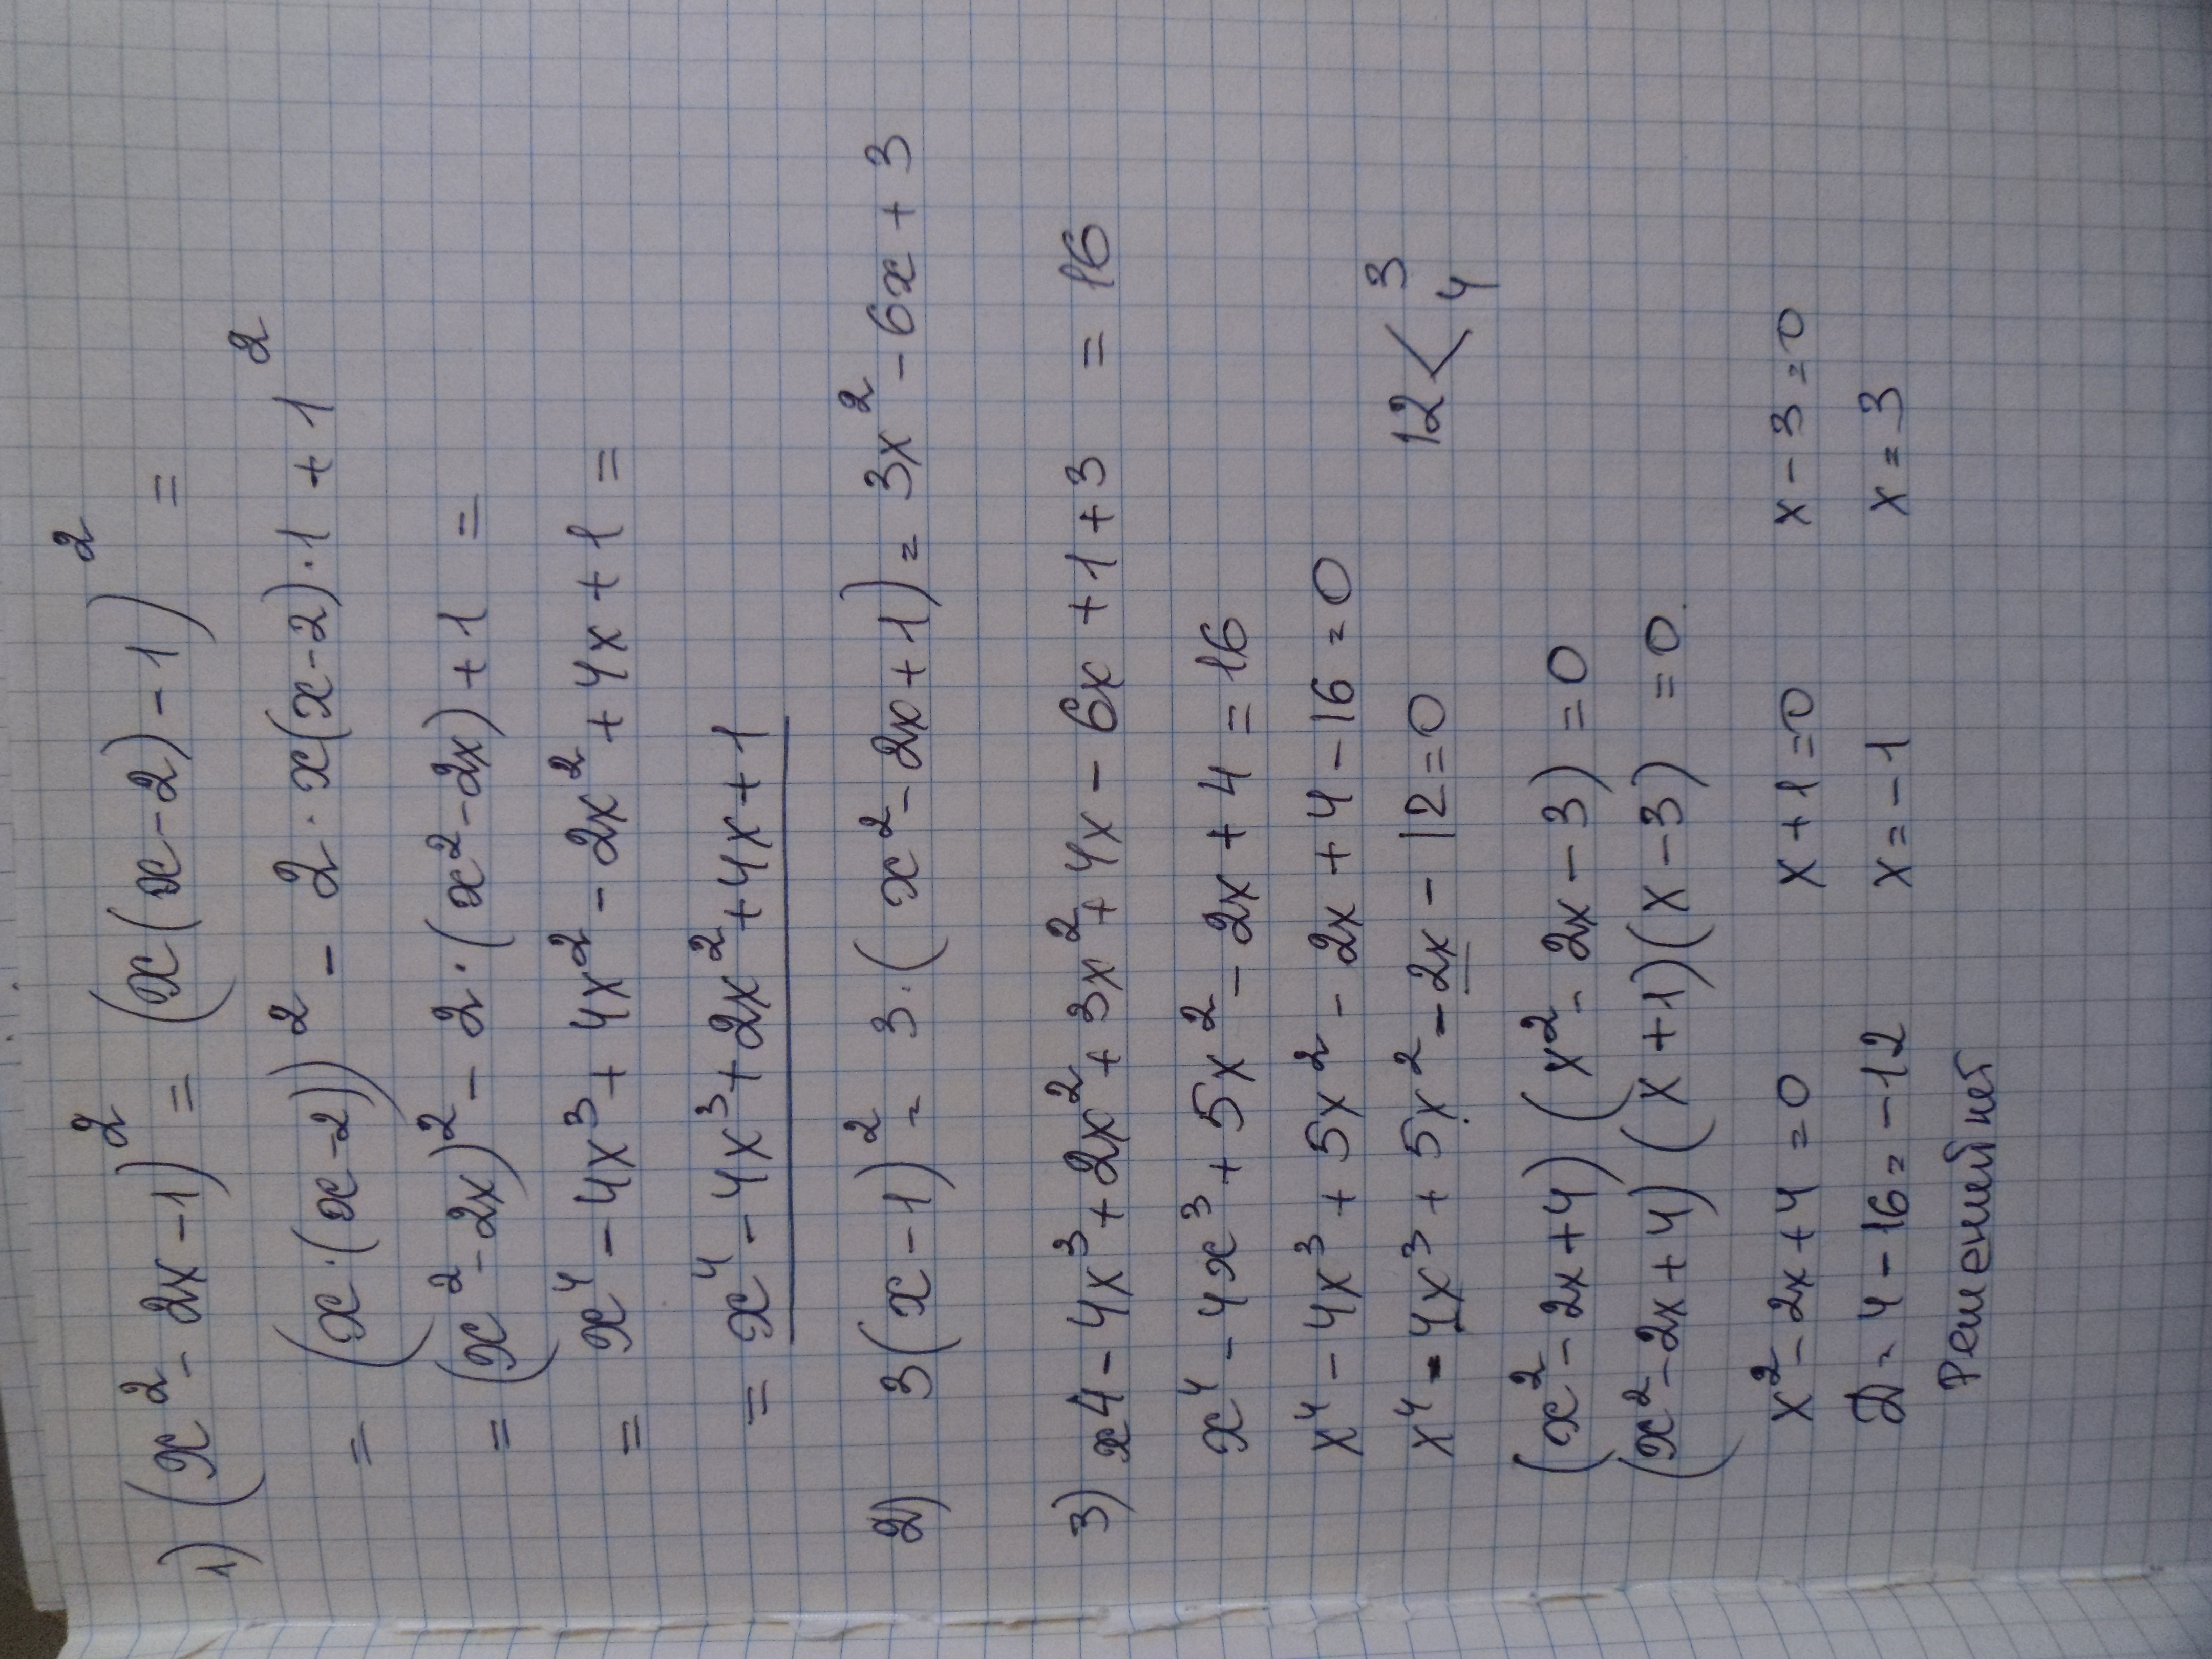 1) (x² - 2x - 1)² = (x(x-2) - 1)² =
= (x·(x-2))² - 2·x(x-2)·1 + 1²
= (x² - 2x)² - 2·(x² - 2x) + 1 =
= x⁴ - 4x³ + 4x² - 2x² + 4x + 1 =
= x⁴ - 4x³ + 2x² + 4x + 1
2) 3(x-1)² = 3·(x² - 2x + 1) = 3x² - 6x + 3
3) x4 - 4x³ + 2x² + 3x² + 4x - 6x + 1 + 3 = 16
x⁴ - 4x³ + 5x² - 2x + 4 = 16
x⁴ - 4x³ + 5x² - 2x + 4 - 16 = 0
x⁴ - 4x³ + 5x² - 2x - 12 = 0 12 < 3 4
(x² - 2x + 4) (x² - 2x - 3) = 0
(x² - 2x + 4) (x + 1)(x - 3) = 0.
x² - 2x + 4 = 0 x + 1 = 0 x - 3 = 0
D = 4 - 16 = -12 x = -1 x = 3
Решений нет